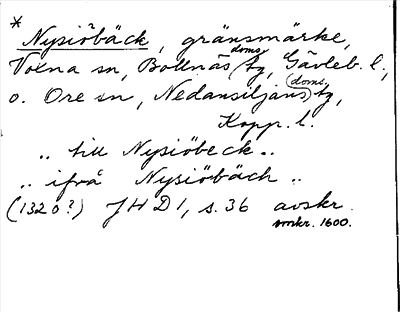 *
Nysiöbäck, gränsmärke,
Voxna sn, Bollnäs doms. tg, Gävleb. l.,
o. Ore sn, Nedansiljans (doms.) tg,
Kopp. l.
.. till Nysiöbeck ..
.. ifrå Nysiöbäch ..
(1320?) JHD 1, s. 36 avskr.
omkr. 1600.